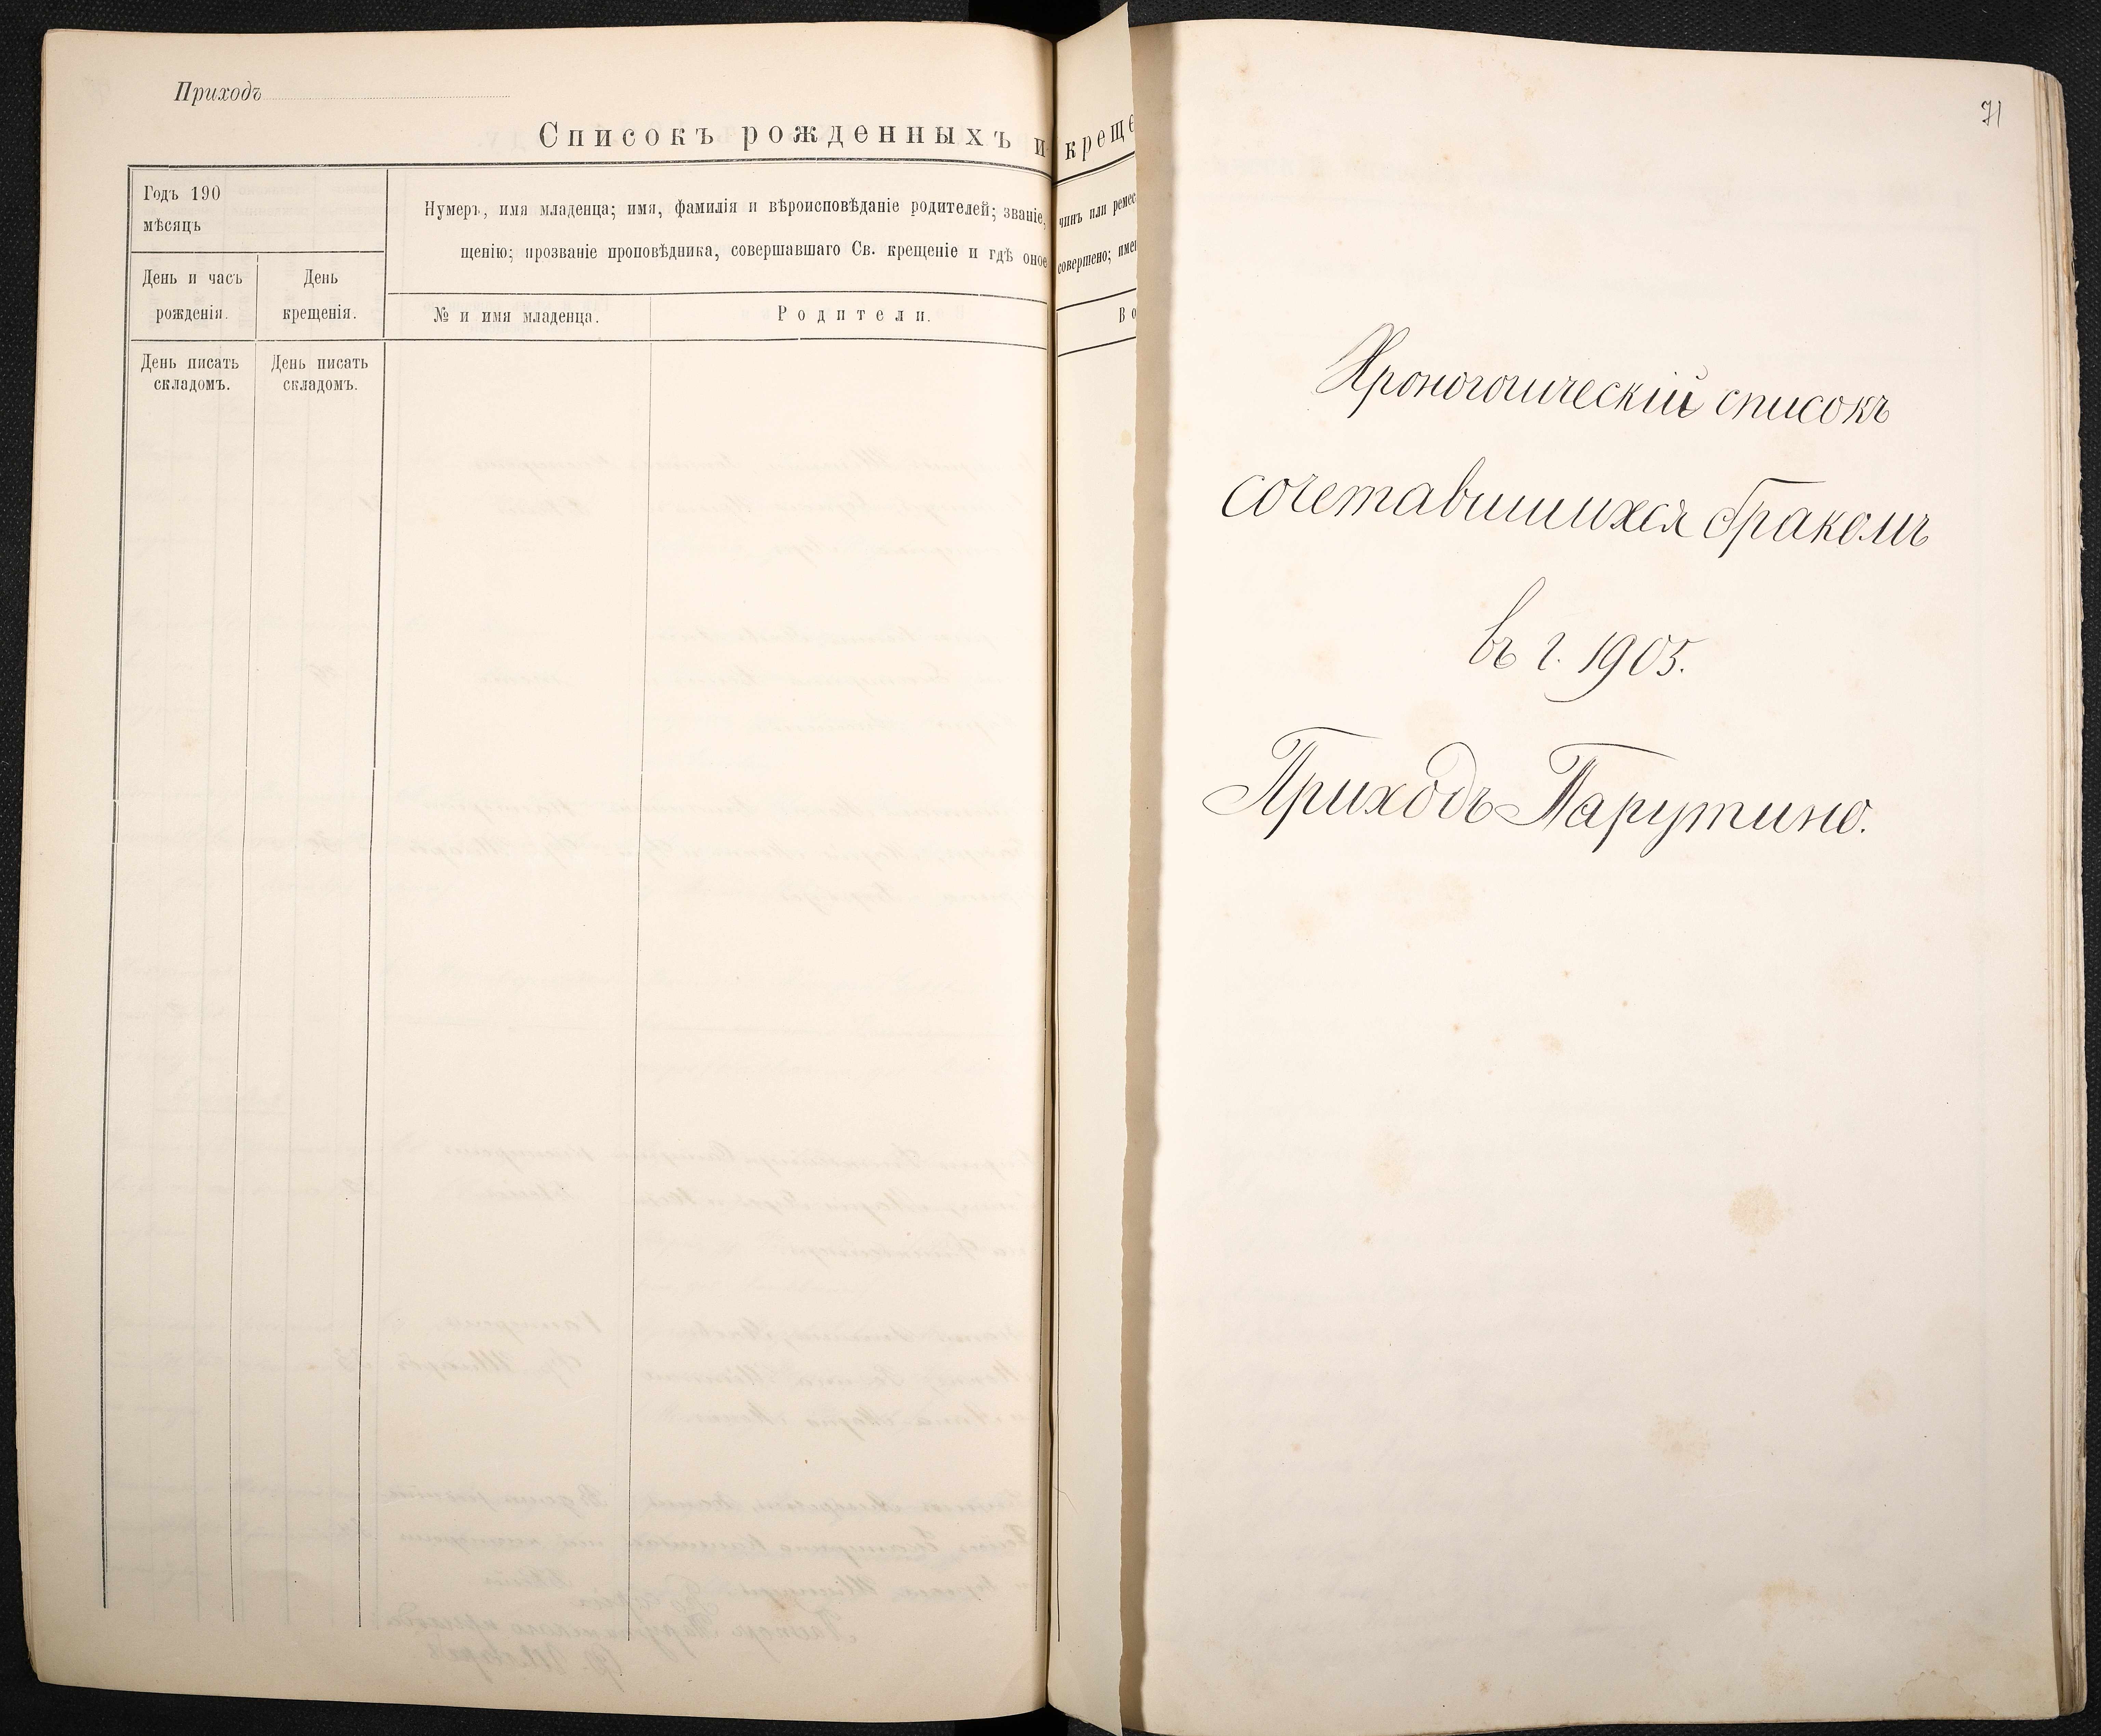 Приходъ
Списокъ рожденныхъ и
Годъ 190
мѣсяцъ
Нумеръ, имя младенца; имя, фамилія и вѣроисповѣданіе родителей; званіе,
щенію; прозваніе проповѣдника, совершавшаго Св. крещеніе и гдѣ оное
День и часъ
рожденія.
День
крещенія.
№ и имя младенца.
Родители.
День писать
складомъ.
День писать
складомъ.
креще
чинъ или ремес
совершено; имен
Во
71
Хронологическій списокъ
сочетавшихся бракомъ
въ г. 1905.
Приходъ Тарутино.